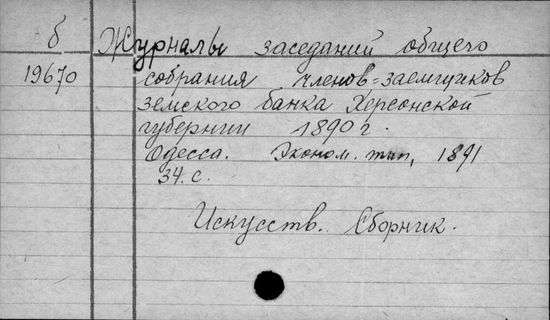 б
Журналы заседаний общего
19670
собрания членов=заемщиков
земского банка Херсонской
губернии 1890 г.
Одесса. Эконом. тип, 1891
34. с.
Искусств. Сборник.